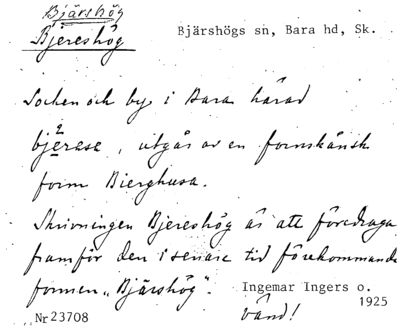 Bjärshög
Bjereshög
Bjärshögs sn, Bara hd, Sk.
Socken och by i Bara härad
bjærase, utgår av en fornskånsk
form Bierghusa.
Skrivningen Bjereshög är att föredraga
framför den i senare tid förekommande
formen "Bjärshög".
Ingemar Ingers o.
1925
Nr 23708
vänd!